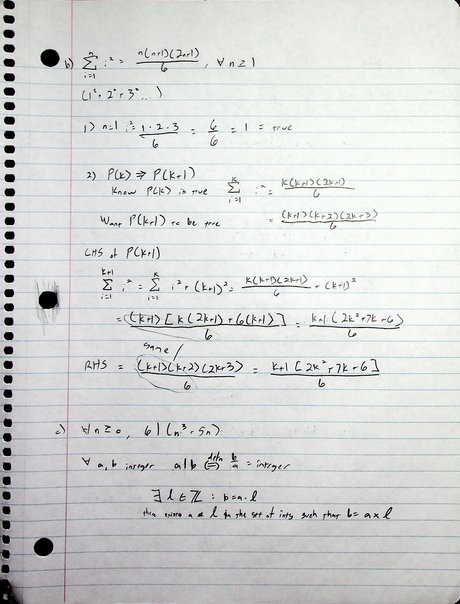 b) n∑i=1 i² = n(n+1)(2n+1)/6 , ∀ n ≥ 1
(1² + 2² + 3² ...)
1) n=1 i² = 1·2·3/6 = 6/6 = 1 = true
2) P(k) ⇒ P(k+1)
Know P(k) is true k∑i=1 i² = k(k+1)(2k+1)/6
Want P(k+1) to be true = (k+1)(k+2)(2k+3)/6
LHS of P(k+1)
k+1∑i=1 i² = k∑i=1 i² + (k+1)² = k(k+1)(2k+1)/6 + (k+1)²
= (k+1)[k(2k+1)+6(k+1)]/6 = k+1(2k²+7k+6)/6
same
RHS = (k+1)(k+2)(2k+3)/6 = k+1[2k²+7k+6]/6
c) ∀ n ≥ 0, 6|(n³-5n)
∀ a, b integer a|b defn⇔ b/a = integer
∃ l ∈ ℤ : b=a·l
there exists a l in the set of ints such that b= a×l